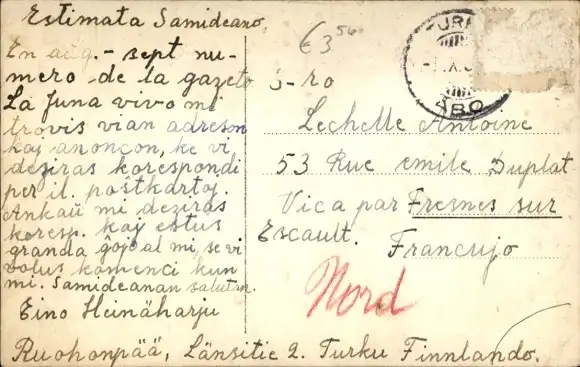 Estimata Samideano,
En aŭg. - sept nu-
mero de la gazeto
La Juna vivo mi
trovis vian adreson
kaj anoncon, ke vi
deziras korespondi
per il. poŝtkartoj.
Ankaŭ mi deziras
koresp. kaj estus
granda ĝojo al mi, se vi
volus komenci kun
mi. Samideanan salutan.
Eino Heinäharju
Ruohonpää, Länsitie 2. Turku Finnlando.
€ 3,50
ÅBO
S-ro
Lechelle Antoine
53 Rue emile Duplat
Vica par Fresnes sur
Escault. Francujo
Nord